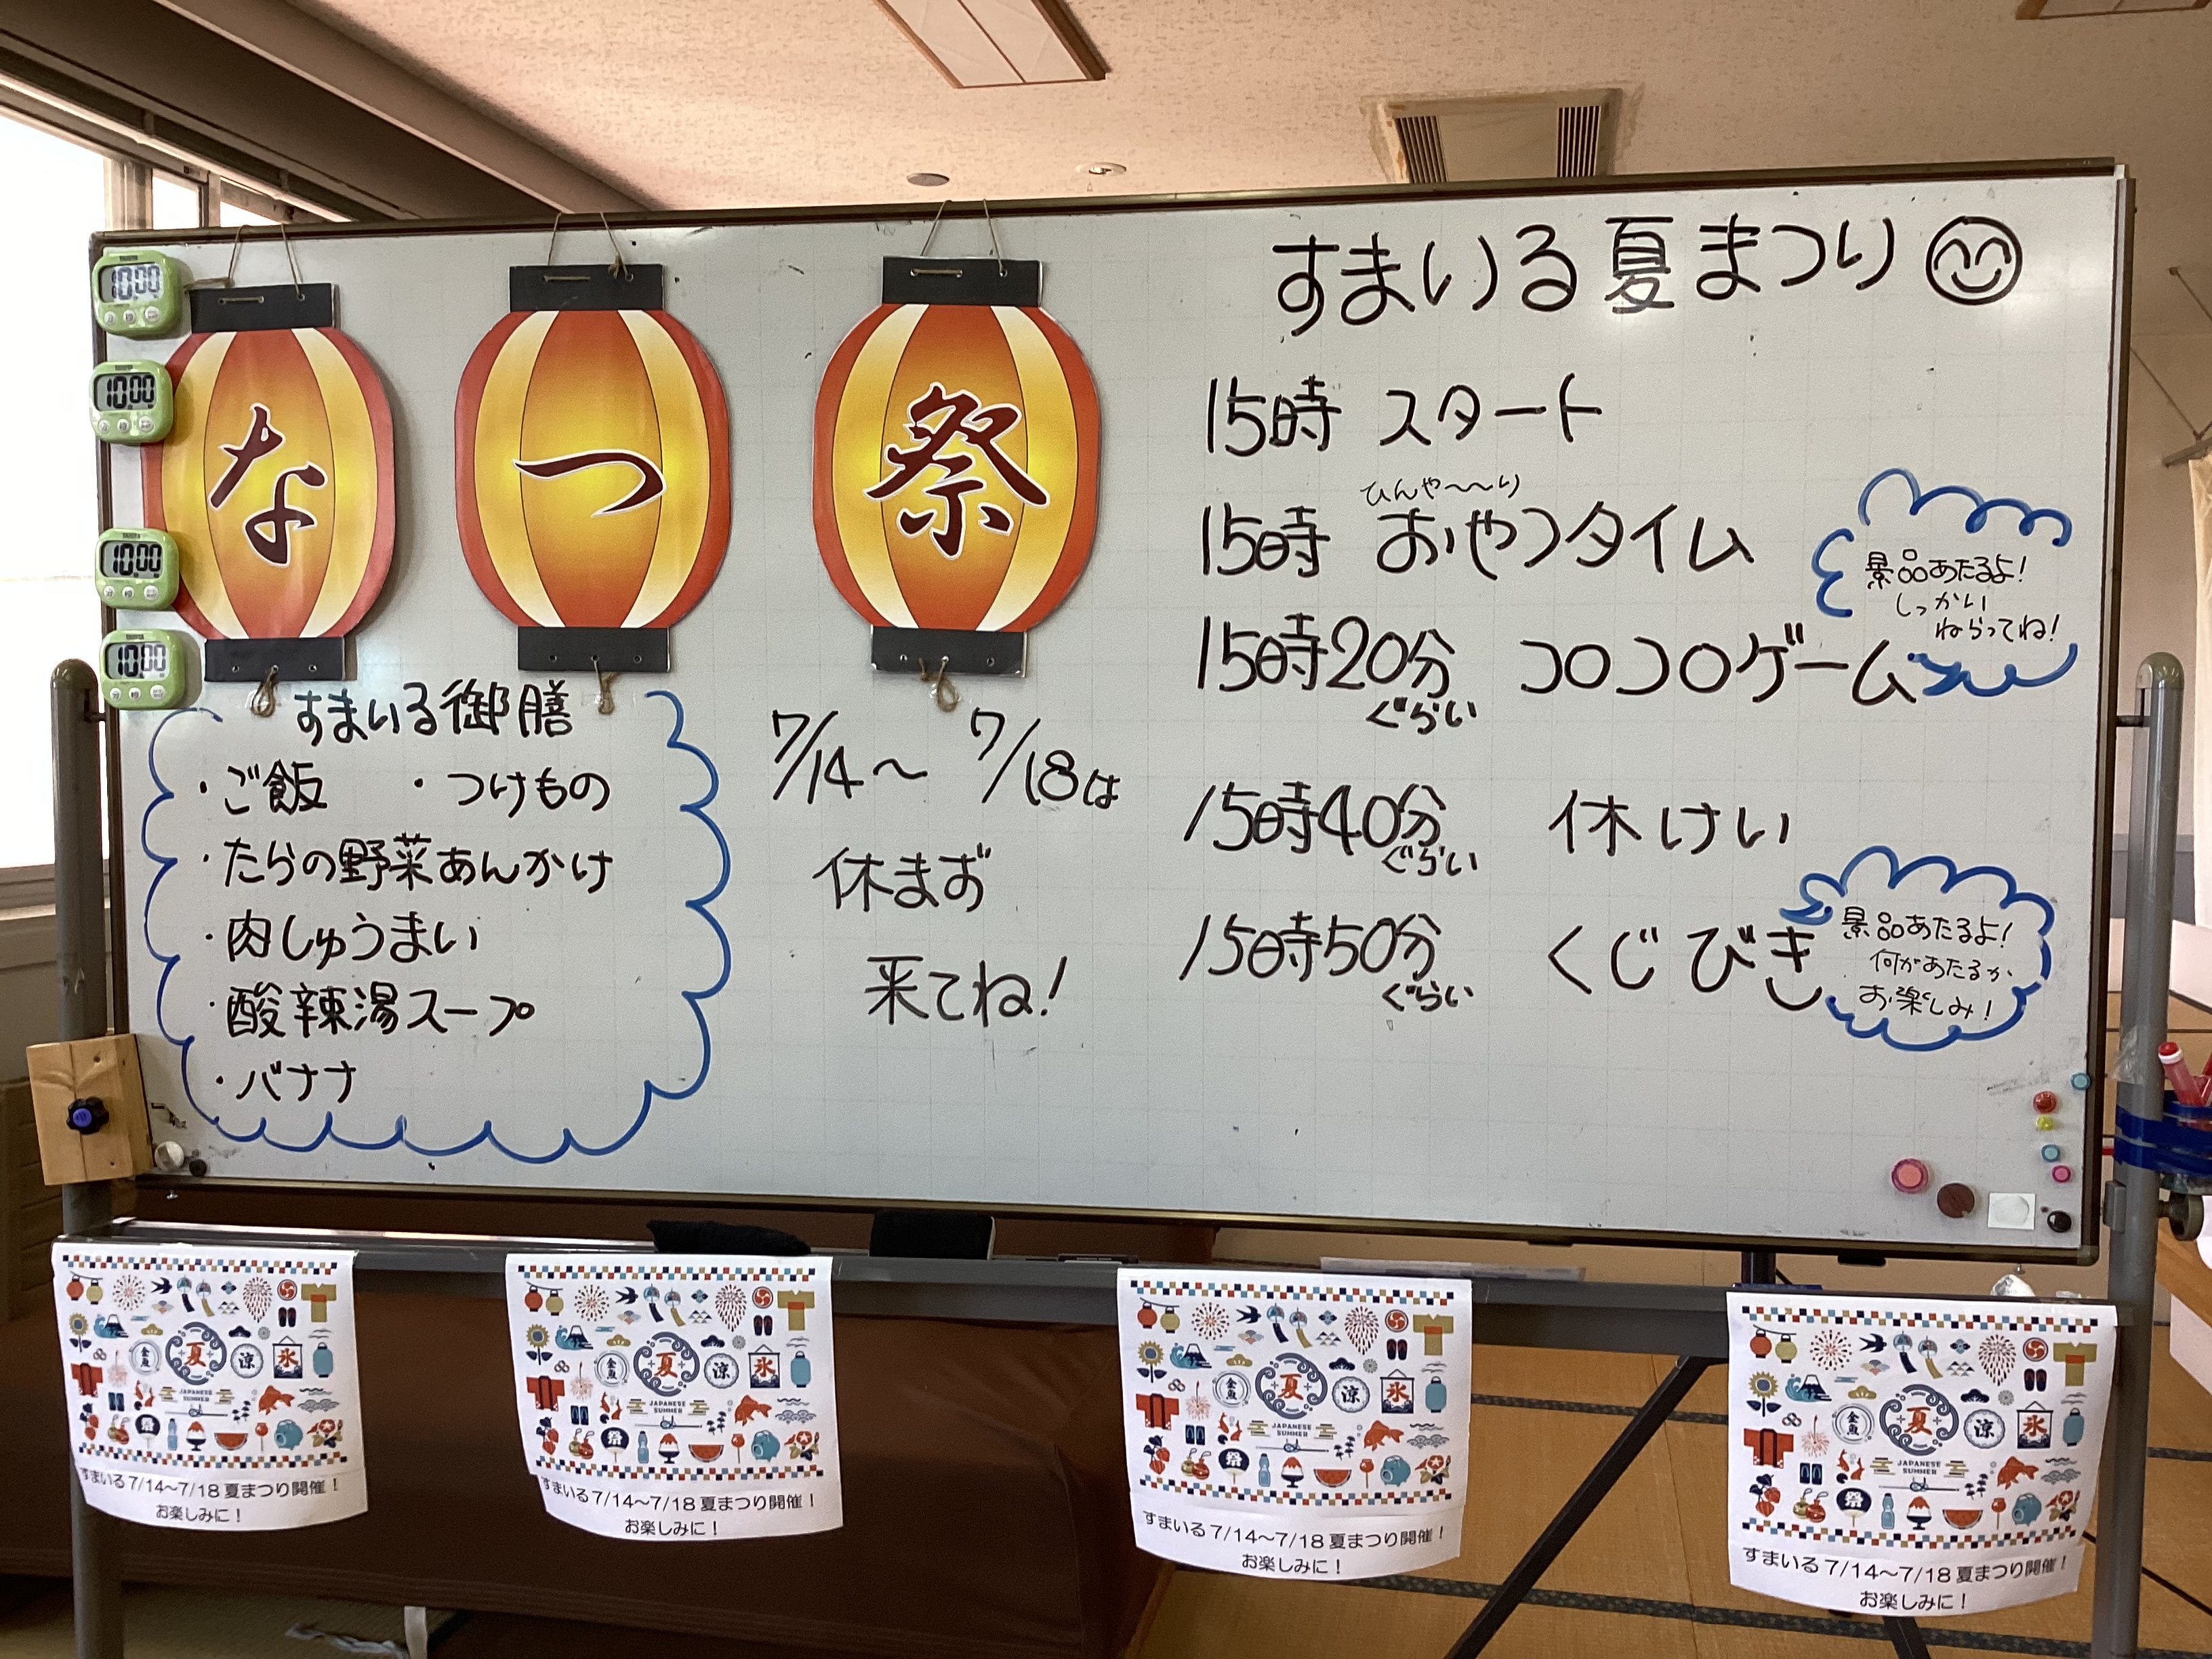 なつ祭
すまいる夏まつり
15時 スタート
ひんや〜〜り
15時 おやつタイム
15時20分 コロコロゲーム
ぐらい
景品あたるよ!
しっかい
ねらってね!
15時40分 休けい
ぐらい
15時50分 くじびき
ぐらい
景品あたるよ!
何があたるか
お楽しみ!
すまいる御膳
・ご飯 ・つけもの
・たらの野菜あんかけ
・肉しゅうまい
・酸辣湯スープ
・バナナ
7/14〜 7/18は
休まず
来てね!
10:00
10:00
10:00
10:00
金魚 夏 涼 氷
JAPANESE SUMMER
祭
すまいる 7/14〜7/18 夏まつり開催!
お楽しみに!
金魚 夏 涼 氷
JAPANESE SUMMER
祭
すまいる 7/14〜7/18 夏まつり開催!
お楽しみに!
金魚 夏 涼 氷
JAPANESE SUMMER
祭
すまいる 7/14〜7/18 夏まつり開催!
お楽しみに!
金魚 夏 涼 氷
JAPANESE SUMMER
祭
すまいる 7/14〜7/18 夏まつり開催!
お楽しみに!